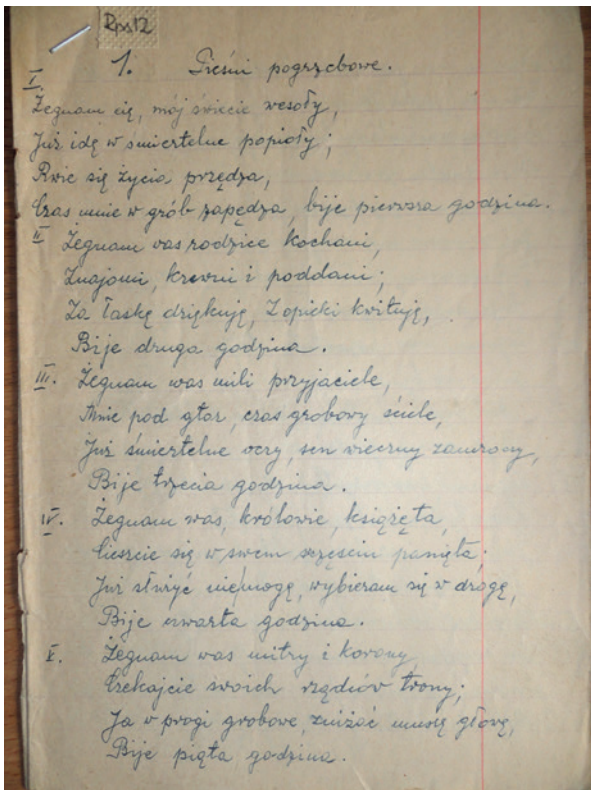 Rps12
1. Pieśni pogrzebowe.
I
Żegnam cię, mój świecie wesoły,
Już idę w śmiertelne popioły;
Rwie się życia przędza,
Czas mnie w grób zapędza, bije pierwsza godzina.
II Żegnam was rodzice kochani,
Znajomi, krewni i poddani;
Za łaskę dziękuję, Z opieki kwituję,
Bije druga godzina.
III. Żegnam was mili przyjaciele,
Mnie pod głaz, czas grobowy ściele,
Już śmiertelne oczy, sen wieczny zamroczy,
Bije trzecia godzina.
IV. Żegnam was, królowie, książęta,
Cieszcie się w swem szczęściu panięta;
Już służyć nie mogę, wybieram się w drogę,
Bije czwarta godzina.
V. Żegnam was mitry i korony,
Czekajcie swoich rządców trony;
Ja w progi grobowe, zniżać muszę głowę,
Bije piąta godzina.